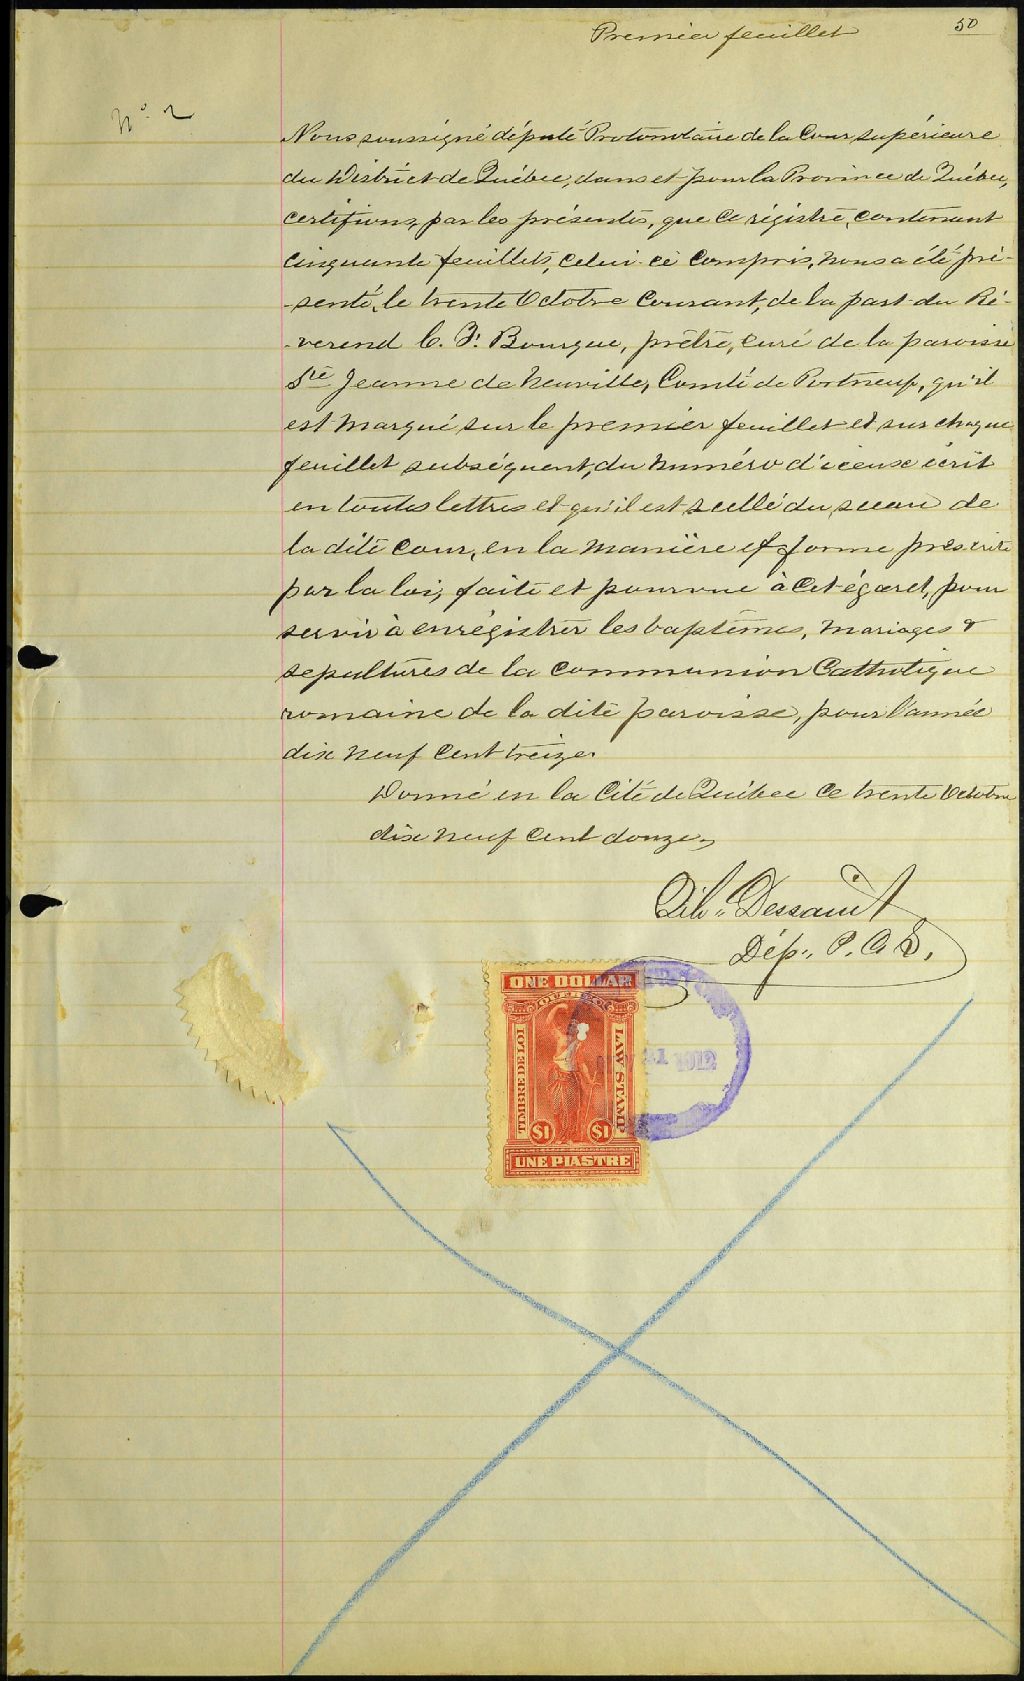 Premier feuillet
50
No. 2
Nous soussigné député Protonotaire de la Cour supérieure
du District de Québec, dans et pour la Province de Québec,
certifions, par les présentes, que ce régistre, contenant
cinquante feuillets, celui-ci compris, nous a été pré-
-senté, le trente Octobre Courant, de la part du Ré-
-verend C. F. Bourque, prêtre, curé de la paroisse
Ste Jeanne de Neuville, Comté de Portneuf, qu'il
est marqué sur le premier feuillet et sur chaque
feuillet subséquent, du numéro d'iceux écrit
en toutes lettres et qu'il est scellé du sceau de
la dite cour, en la manière et forme prescrite
par la loi, faite et pourvue à cet égard, pour
servir à enrégistrer les baptêmes, mariages &
sepultures de la communion Catholique
romaine de la dite paroisse, pour l'année
dix neuf cent treize.
Donné en la Cité de Québec ce trente Octobre
dix neuf cent douze.
Dessault
Dép. P. C. S.
ONE DOLLAR
QUEBEC
TIMBRE DE LOI
LAW STAMP
$1
$1
UNE PIASTRE
1912